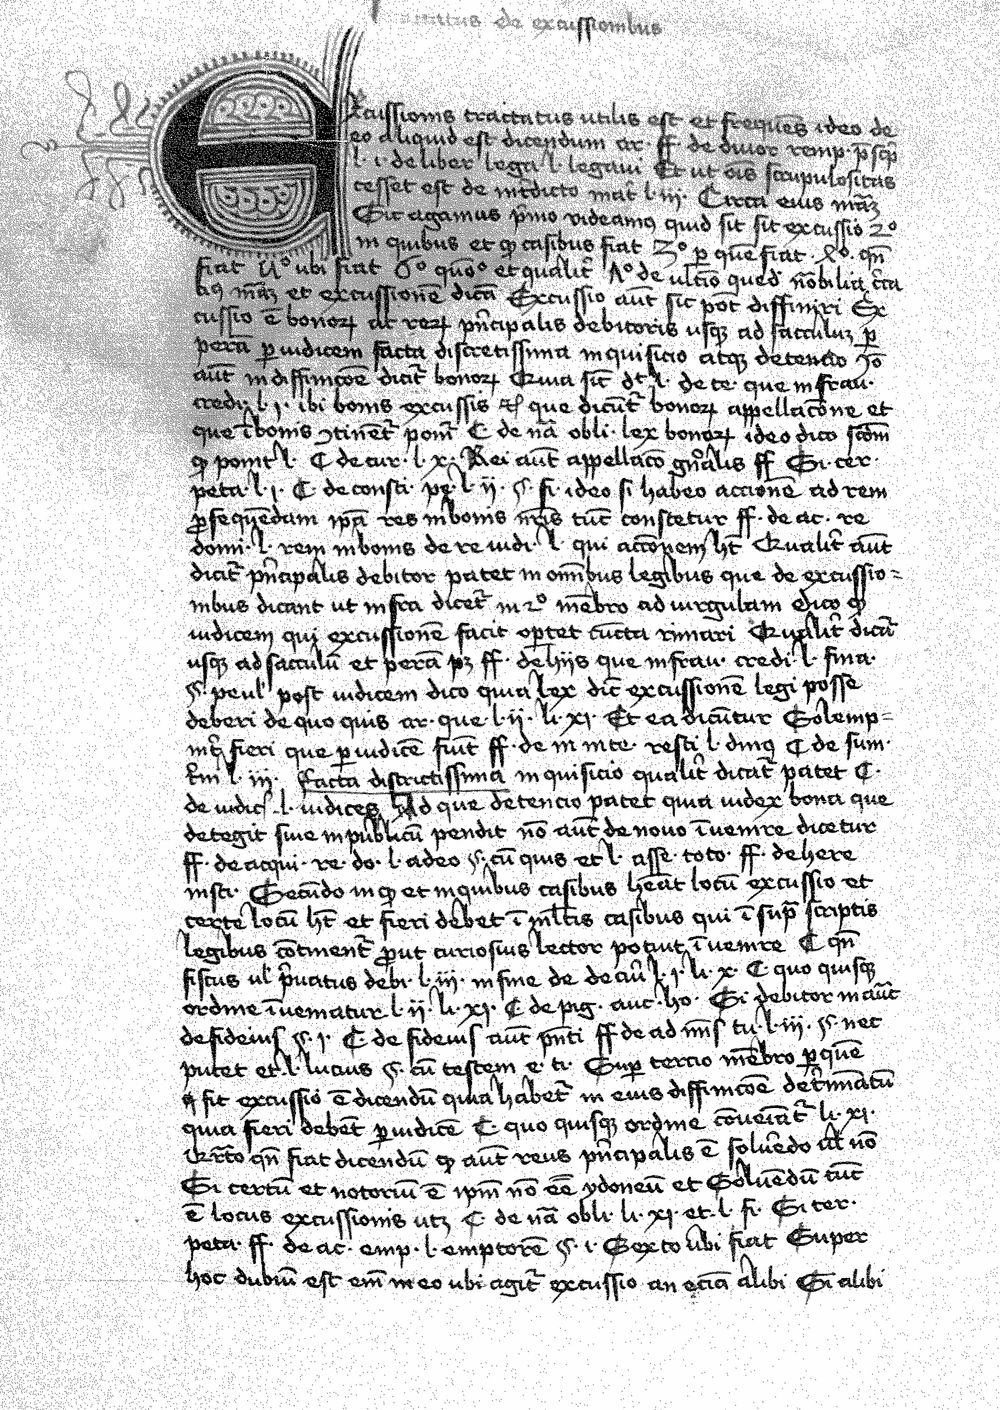 de excussionibus
Excussionis tractatus utilis est et frequēs ideo de
eo aliquid est dicendum ar. ff. de diuor remp. p̄scp̄
l. i. de liber lega l. legaui Et ut oīs scrupulositas
cesset est de int̄dicto mat̄ l. iii. Circa eius māz
Sic agamus p̄mo videamꝯ quid sit sit excussio 2º
in quibus et qͥ casibus fiat 3º per quē fiat 4º qn̄
fiat Vº ubi fiat 6º quōº et qualit̄ 7º de ult̄io
māz et excussionē dicā Excussio aūt sic pōt diffiniri Ex
cussio ē bonoꝝ ac reꝝ pn̄cipalis debitoris usqꝫ ad sacculuꝫ ꝑ
perā ꝑ iudicem facta discretissima inquisicio atqꝫ detencio
aūt in diffinicōe dicit̄ bonoꝝ Quia sic dt̄ l. de te. que in frau.
credi. l. i. ibi bonis excussis que dicūt̄ bonoꝝ appellacōne et
que ī bonis ꝯtinēt̄ C de nā obli. lex bonoꝝ ideo dico scōm
l. C de cur. l. x. Rei aūt appellacō gn̄alis ff Si cer.
peta. l. i. C. de consti. pe. l. ii. §. fi. ideo si habeo accionē ad rem
ꝓsequēdam ipā res in bonis nr̄is tūc consetur ff. de ac. re
domi. l. rem in bonis de re iudi. l. qui accōnem ht̄ Qualit̄ aūt
dicit̄ pn̄cipalis debitor patet in omībus legibus que de excussio=
nibus dicant ut infra dicet̄ in 2º mēbro ad uirgulam dico qͥ
iudicem qui excussionē facit optet cūcta rimari Qualit̄ dicā
usqꝫ ad sacculū et perā pꝫ ff. de hiis que in frau. credi. l. fina.
§. peul̄ post iudicem dico quia lex dic̄ excussionē legi posse
deberi de quo quis ar. que l. ii. li. xi. Et ea dicūtur Solemp=
nit̄ fieri que ꝑ iudicē fiūt ff. de in inte. resti l. diuꝯ C de sum.
t̄ni l. iii. facta districtissima inquisicio qualit̄ dicat̄ patet C.
de iudic̄. l. iudices Ad que detencio patet quia iudex bona que
detegit siue in publicū pendit nō aūt de nouo īuenire dicetur
ff. de acqui. re. do. l. adeo §. cū quis et l. asse. toto. ff. de here
insti. Secūdo in qͥ et in quibus casibus hēat locū excussio et
certe locū ht̄ et fieri debet ī ml̄tis casibus qui ī sup̄ scriptis
legibus cōtinent̄ ꝓut curiosius lector potuit īuenire C qn̄
fiscus ul̄ p̄uatus debi. l. iii. in fine de decur̄ l. i. li. x. C quo quisqꝫ
ordine īueniatur l. ii. li. xi. C de pig. auc. ho. Si debitor in aut̄
de fideius §. i. C. de fideius aūt pn̄ti ff de ad mīs tu. l. iii. §. nec
putet et l. lucius §. cū testem e. ti. Sup̄ tercio mēbro ꝑ quē
fit excussio ē dicendū quia habet̄ in eius diffinicōe det̄minatū
quia fieri debet ꝑ iudicē C. quo quisqꝫ ordine cōueīat̄ li. xi.
qn̄ fiat dicendū qͥ aūt reus pn̄cipalis ē soluēdo ul̄ nō
Si certū et notoriū ē ipm̄ nō eē ydoneū et Soluēdū tūc
ē locus excussionis utꝫ C. de nā obli. li. xi. et l. fi. Si cer.
peta. ff. de ac. emp. l. emptorē §. i. Sexto ubi fiat Super
hoc dubiū est em̄ in eo ubi agit̄ excussio an eciā alibi Si alibi